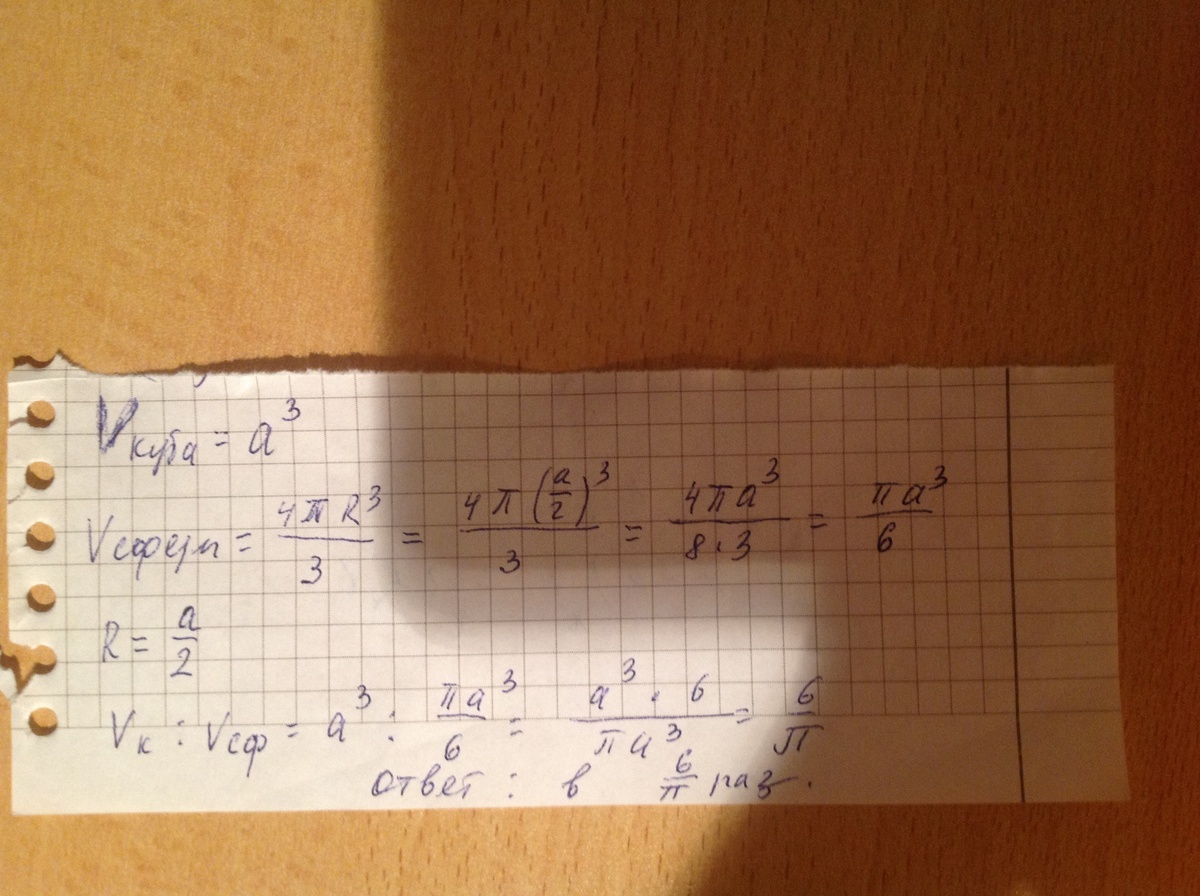 Vкуба = a³
Vсферы = 4πR³/3 = 4π(a/2)³/3 = 4πa³/8·3 = πa³/6
R = a/2
Vк : Vсф = a³ : πa³/6 = a³·6/πa³ = 6/π
ответ : в 6/π раз.